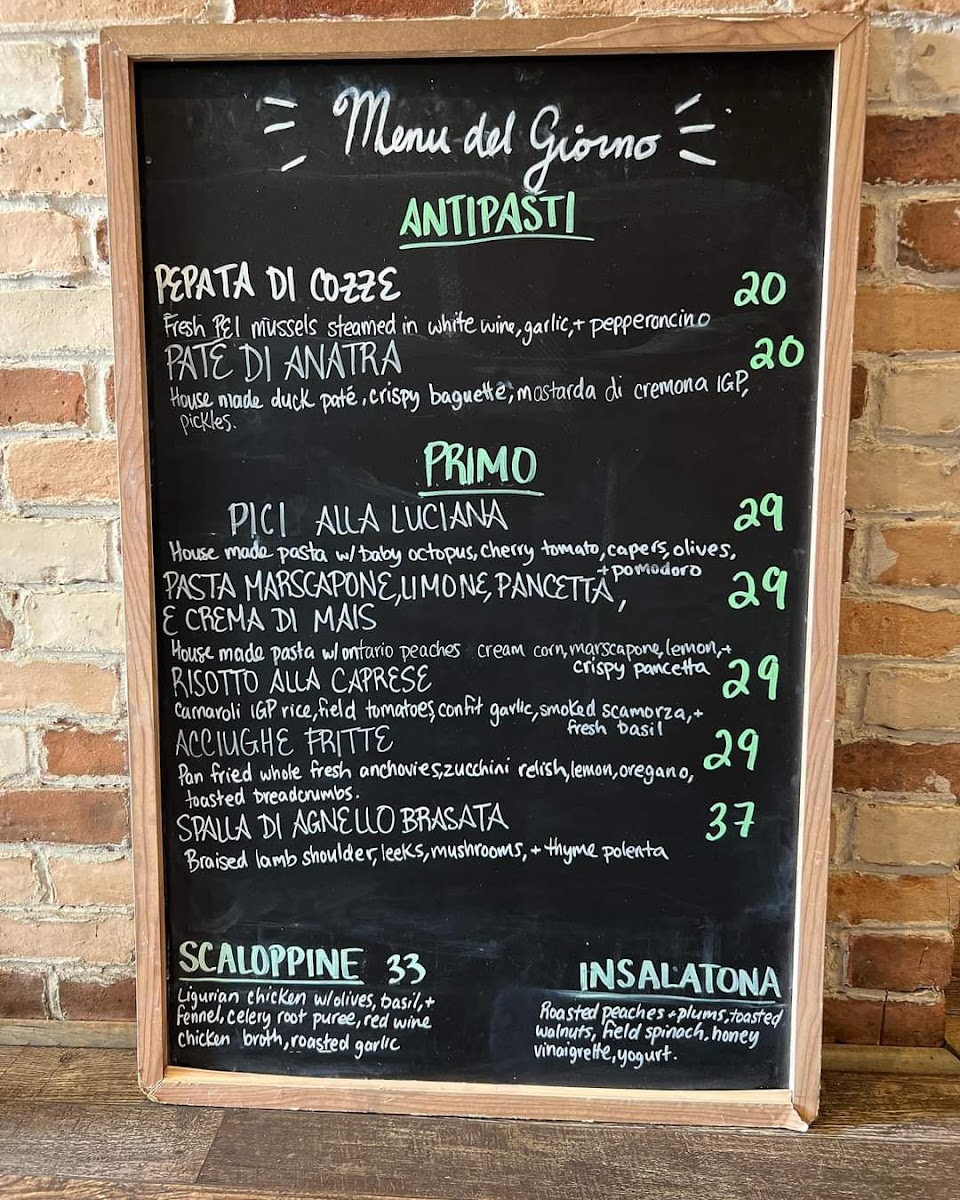 Menu del Giorno
ANTIPASTI
PEPATA DI COZZE 20
Fresh PEI mussels steamed in white wine, garlic, + pepperoncino
PATÉ DI ANATRA 20
House made duck paté, crispy baguette, mostarda di cremona IGP,
pickles.
PRIMO
PICI ALLA LUCIANA 29
House made pasta w/ baby octopus, cherry tomato, capers, olives,
+ pomodoro
PASTA MARSCAPONE, LIMONE, PANCETTA, 29
E CREMA DI MAIS
House made pasta w/ ontario peaches cream corn, marscapone, lemon, +
crispy pancetta
RISOTTO ALLA CAPRESE 29
Carnaroli IGP rice, field tomatoes, confit garlic, smoked scamorza, +
fresh basil
ACCIUGHE FRITTE 29
Pan fried whole fresh anchovies, zucchini relish, lemon, oregano,
toasted breadcrumbs.
SPALLA DI AGNELLO BRASATA 37
Braised lamb shoulder, leeks, mushrooms, + thyme polenta
SCALOPPINE 33
Ligurian chicken w/ olives, basil, +
fennel, celery root puree, red wine
chicken broth, roasted garlic
INSALATONA
Roasted peaches + plums, toasted
walnuts, field spinach, honey
vinaigrette, yogurt.